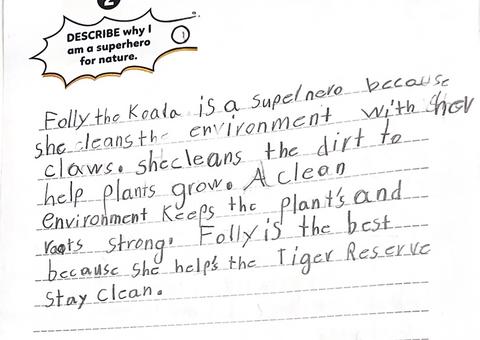 2
DESCRIBE why I
am a superhero
for nature.
1
Folly the Koala is a superhero because
she cleans the environment with her
claws. she cleans the dirt to
help plants grow. A clean
environment Keeps the plant's and
roots strong. Folly is the best
because she help's the Tiger Reserve
Stay Clean.